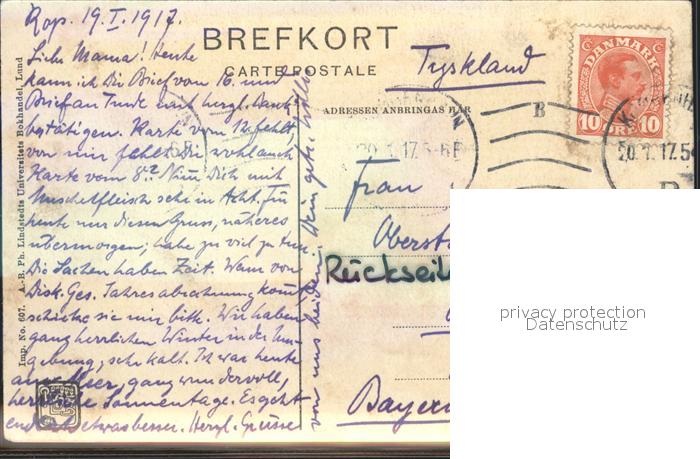 Kop. 19.I.1917.
Liebe Mama! Heute
kann ich Dir Brief vom 16. und
Brief an Trude mit herzl. Dank
bestätigen. Karte vom 12. fehlt,
von mir fehlt Dir wohl auch
Karte vom 8.? Nim Dich mit
Muschelfleisch sehr in Acht. Für
heute nur diesen Gruss, näheres
übermorgen; habe zu viel zu tun.
Die Sachen haben Zeit. Wenn von
Disk. Ges. Jahresabrechnung kommt,
schicke sie mir bitte. Wir haben
ganz herrlichen Winter in der Um-
gebung, sehr kalt. Ist war heute
am Meer, ganz wundervoll,
herrliche Sonnentage. Es geht
etwas besser. Herzl. Grüsse
von uns beiden, Dein getr.
Imp. No. 607. A.-B. Ph. Lindstedts Universitets Bokhandel, Lund
BREFKORT
CARTE POSTALE
Tyskland
ADRESSEN ANBRINGAS HÄR
DANMARK
10 ØRE 10
B
20.1.17.5-6F
20.1.17.5
Frau
Oberst
Rückseit
Bayer
privacy protection
Datenschutz